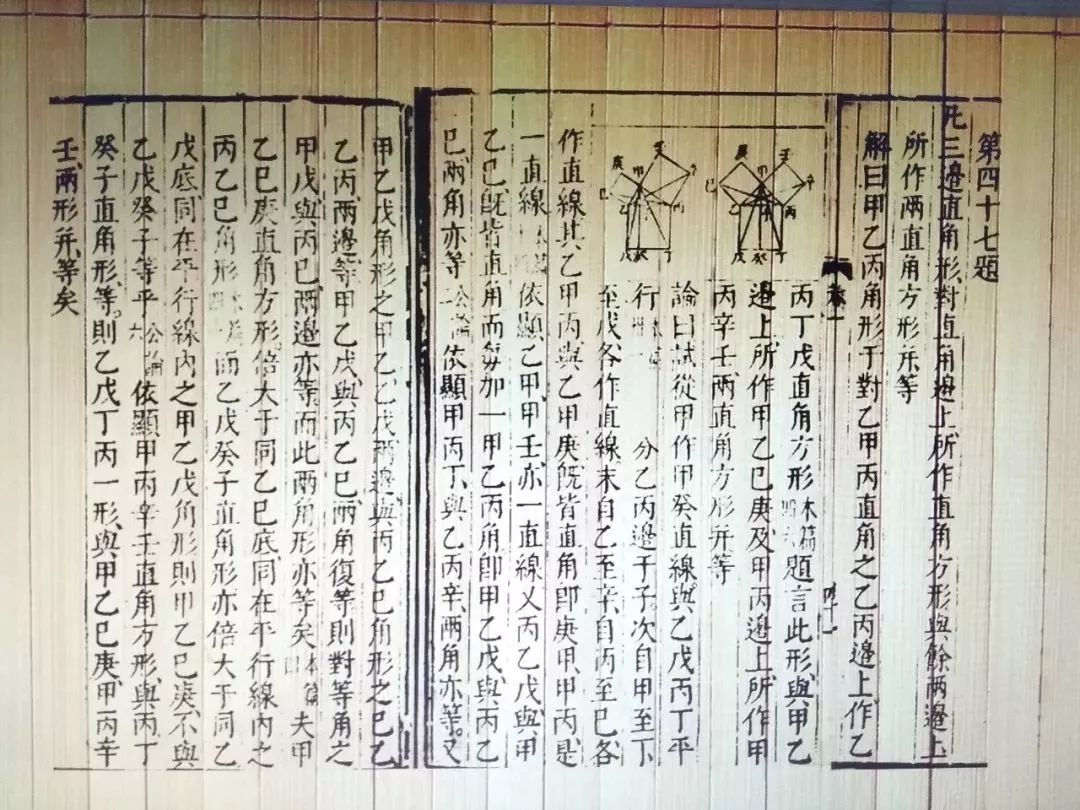 第四十七題
凡三邊直角形對直角邊上所作直角方形與餘兩邊上
所作兩直角方形并等
解曰甲乙丙角形于對乙甲丙直角之乙丙邊上作乙
卷一
庚 壬 甲 辛 巳 乙 丙 戊 癸 丁
庚 壬 甲 辛 巳 乙 丙 戊 丁
丙丁戊直角方形本篇題言此形與甲乙
邊上所作甲乙巳庚及甲丙邊上所作甲
丙辛壬兩直角方形并等
論曰試從甲作甲癸直線與乙戊丙丁平
行 分乙丙邊于子次自甲至丁
至戊各作直線末自乙至辛自丙至巳各
作直線其乙甲丙與乙甲庚既皆直角即庚甲甲丙是
一直線 依顯乙甲甲壬亦一直線又丙乙戊與甲
乙巳既皆直角而每加一甲乙丙角即甲乙戊與丙乙
巳兩角亦等公論依顯甲丙丁與乙丙辛兩角亦等又
甲乙戊角形之甲乙乙戊兩邊與丙乙巳角形之巳乙
乙丙兩邊等甲乙戊與丙乙巳兩角復等則對等角之
甲戊與丙巳兩邊亦等而此兩角形亦等矣本篇夫甲
乙巳庚直角方形倍大于同乙巳底同在平行線內之
丙乙巳角形 而乙戊癸子直角形亦倍大于同乙
戊底同在平行線內之甲乙戊角形則甲乙巳庚不與
乙戊癸子等乎公論六依顯甲丙辛壬直角方形與丙丁
癸子直角形等則乙戊丁丙一形與甲乙巳庚甲丙辛
壬兩形并等矣